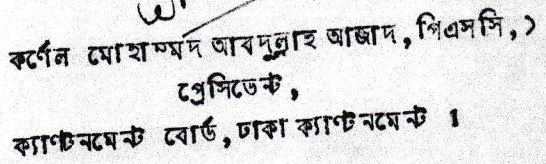 কর্ণেল মোহাম্মদ আবদুল্লাহ আজাদ, পিএসসি,)
প্রেসিডেন্ট,
ক্যান্টনমেন্ট বোর্ড, ঢাকা ক্যান্টনমেন্ট ।